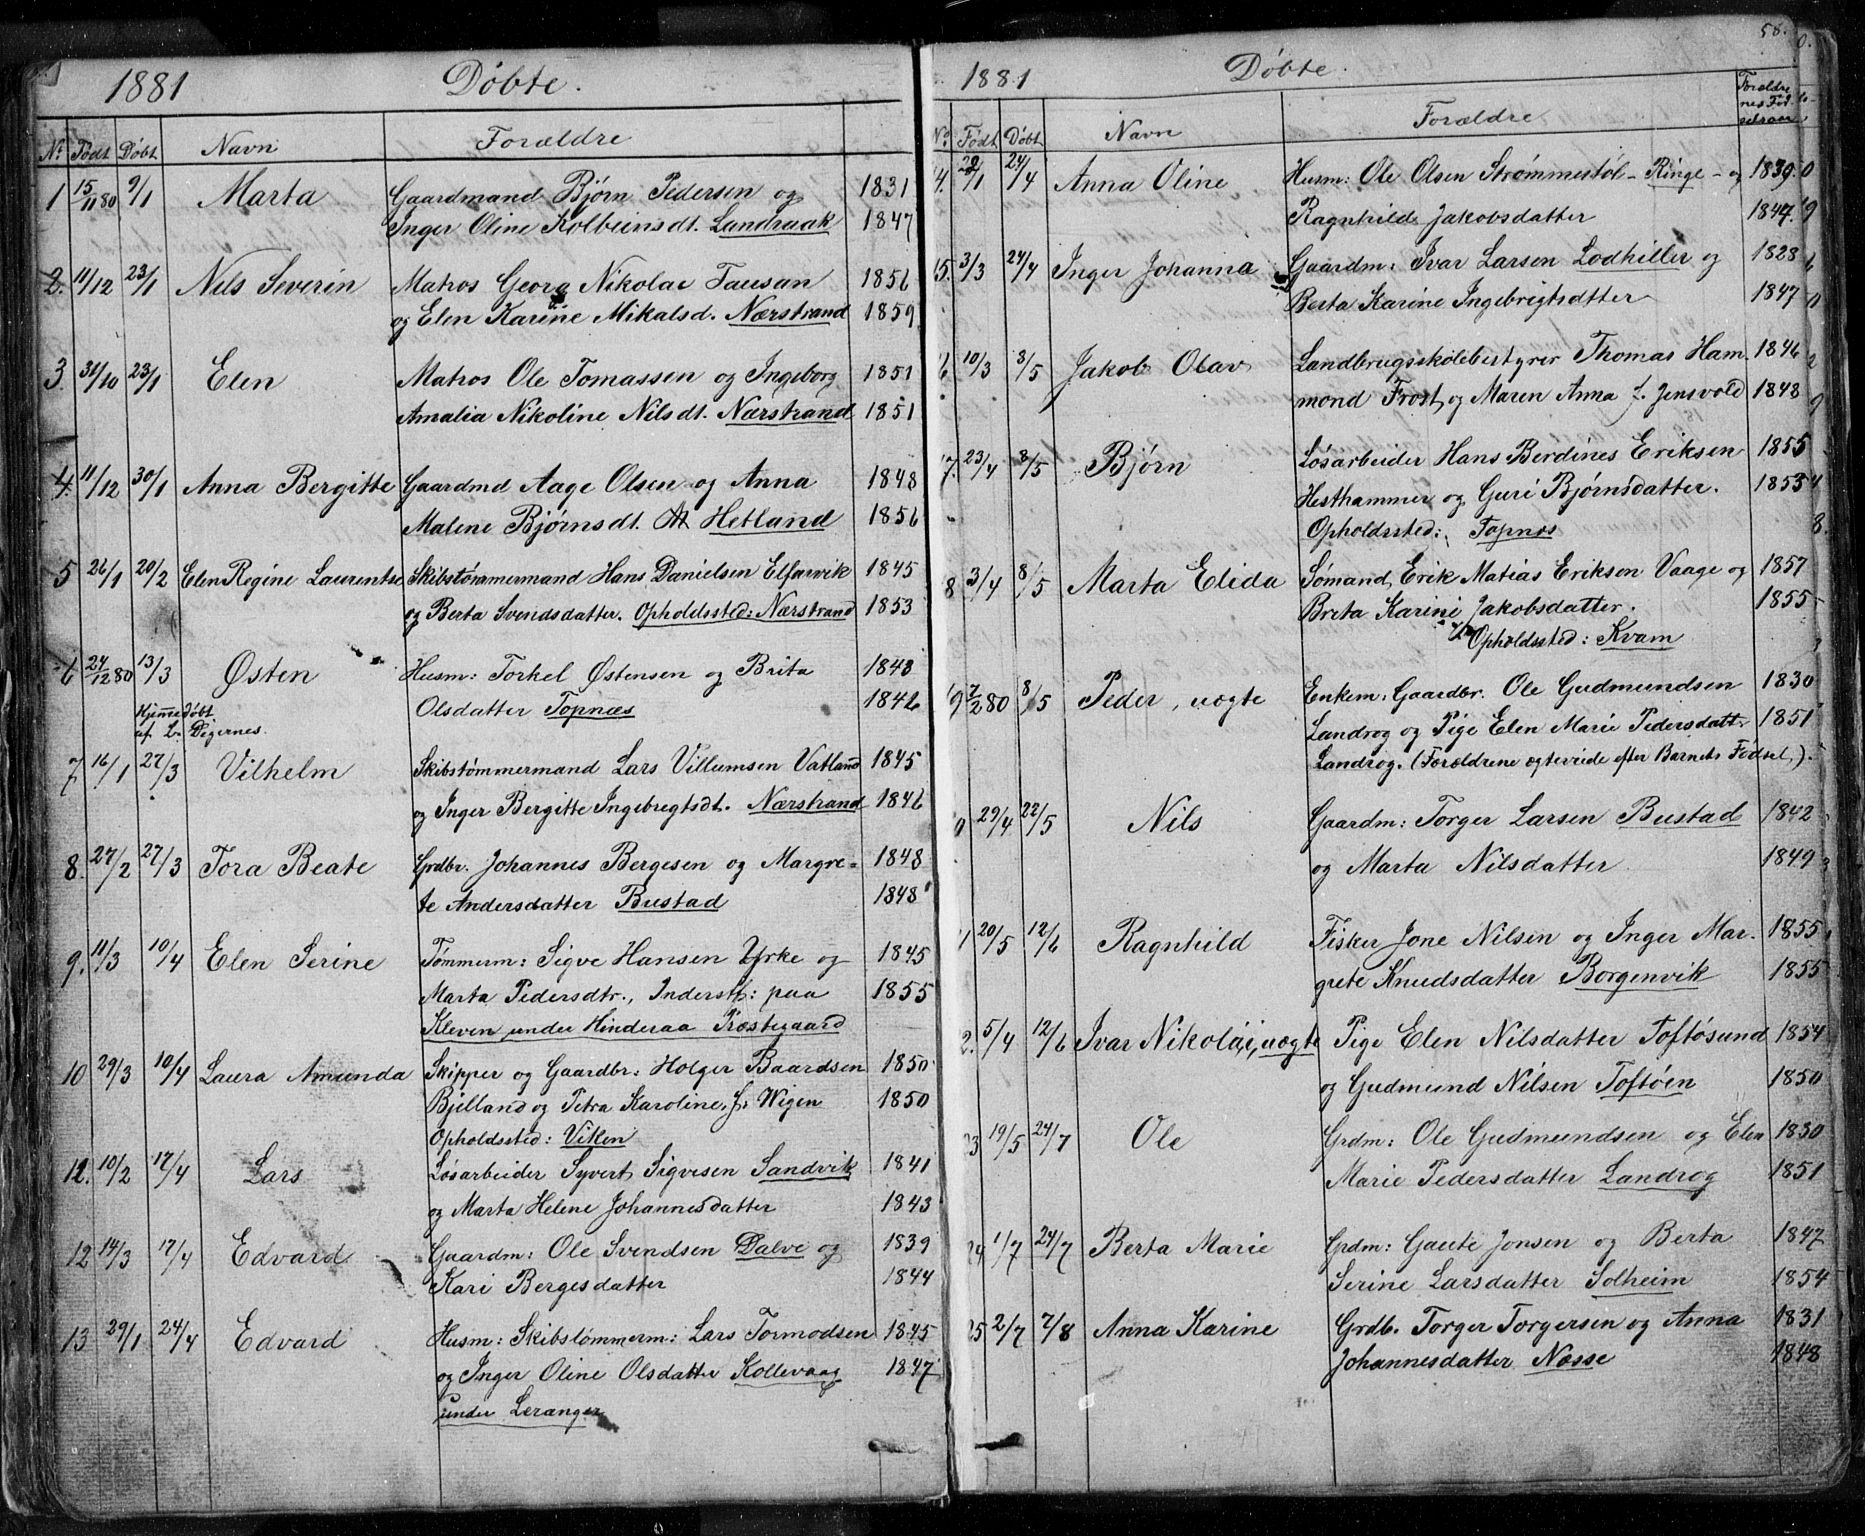 1881 Døbte.
Nr. Født Døbt Navn Forældre
1 15/11 80 9/1 Marta Gaardmand Bjørn Pedersen og 1831
Inger Oline Kolbeinsdt. Landraak 1847
2. 11/12 23/1 Nils Severin Matros Georg Nikolai Tausan 1856
og Elen Karine Mikalsd. Nærstrand 1859
3. 31/10 23/1 Elen Matros Ole Tomassen og Ingeborg 1851
Amalia Nikoline Nilsdt. Nærstrand 1851
4. 11/12 30/1 Anna Bergitte Gaardmd Aage Olsen og Anna 1848
Malene Bjørnsdt. Hetland 1856
5 26/1 20/2 Elen Regine Laurentse Skibstømmermand Hans Danielsen Elfarvik 1845
og Berta Svendsdatter. Opholdssted: Nærstrand 1853
6 24/12 80 13/3 Østen Husm: Torkel Østensen og Brita 1843
Olsdatter Topnæs 1842
Hjemedøbt
af L. Digernes.
7 16/1 27/3 Vilhelm Skibstømmermand Lars Villumsen Vatland 1845
og Inger Bergitte Ingebregtsdt. Nærstrand 1846
8. 27/2 27/3 Tora Beate Grdbr. Johannes Bergesen og Margre- 1848
te Andersdatter Bustad 1848
9. 11/3 10/4 Elen Serine Tømmerm: Sigve Hansen Yrke og 1845
Marta Pedersdtr., Inderst: paa 1855
Kleven under Hinderaa Præstegaard
10 29/3 10/4 Laura Amunda Skipper og Gaardbr: Holger Baardsen 1850
Bjelland og Petra Karoline, f. Wigen 1850
Opholdssted: Viken
11. 10/2 17/4 Lars Løsarbeider Syvert Sigvesen Sandvik 1841
og Marta Helene Johannesdatter 1843
12 14/3 17/4 Edvard Gaardm: Ole Svendsen Dalve og 1839
Kari Bergesdatter 1844
13 29/1 24/4 Edvard Husm: Skibstømmerm: Lars Tormodsen 1845
og Inger Oline Olsdatter Kollevaag 1847
under Leranger
58.
1881 Døbte.
No. Født Døbt Navn Forældre Forældre
nes Fød
selsaar
4. 22/1 24/4 Anna Oline Husm: Ole Olsen Strømmestøl - Ringe - og 1839.
Ragnhild Jakobsdatter 1847.
5. 3/3 24/4 Inger Johanna Gaardm: Ivar Larsen Lodhiller og 1828
Berta Karine Ingebrigtsdtter 1847
6 10/3 8/5 Jakob Olav Landbrugsskolebestyrer Thomas Ham 1846
mond Frost og Maren Anna f. Jensvold 1848
7. 23/4 8/5 Bjørn Løsarbeider Hans Berdines Eriksen 1855
Hesthammer og Guri Bjørnsdatter. 1853
Opholdssted: Topnæs
8 3/4 8/5 Marta Elida Sømand Erik Matias Eriksen Vaage og 1857
Breta Karine Jakobsdatter. 1855
Opholdssted: Kvam
9 7/2 80 8/5 Peder, uægte Enkem: Gaardbr. Ole Gudmundsen 1830
Landrog og Pige Elen Marie Pedersdatt. 1851
Landrog. (Forældrene egteviede efter Barnets Fødsel).
0 29/4 22/5 Nils Gaardm: Torger Larsen Bustad 1842
og Marta Nilsdatter 1849
1 20/5 12/6 Ragnhild Fisker Jone Nilsen og Inger Mar- 1855
grete Knudsdatter Borgenvik 1855
2. 5/4 12/6 Ivar Nikolai, uægte Pige Elen Nilsdatter Toftøsund 1854
og Gudmund Nilsen Toftøen 1850
23 19/5 24/7 Ole Grdm: Ole Gudmundsen og Elen 1830
Marie Pedersdatter Landrog 1851
24 1/7 24/7 Berta Marie Grdm: Gaute Jonsen og Berta 1847
Serine Larsdatter Solheim 1854
25 2/7 7/8 Anna Karine Grdb. Torger Torgersen og Anna 1831
Johannesdatter Næsse 1848